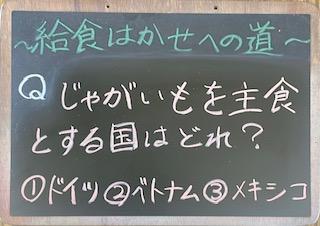 ～給食はかせへの道～
Q じゃがいもを主食
とする国はどれ？
①ドイツ②ベトナム③メキシコ